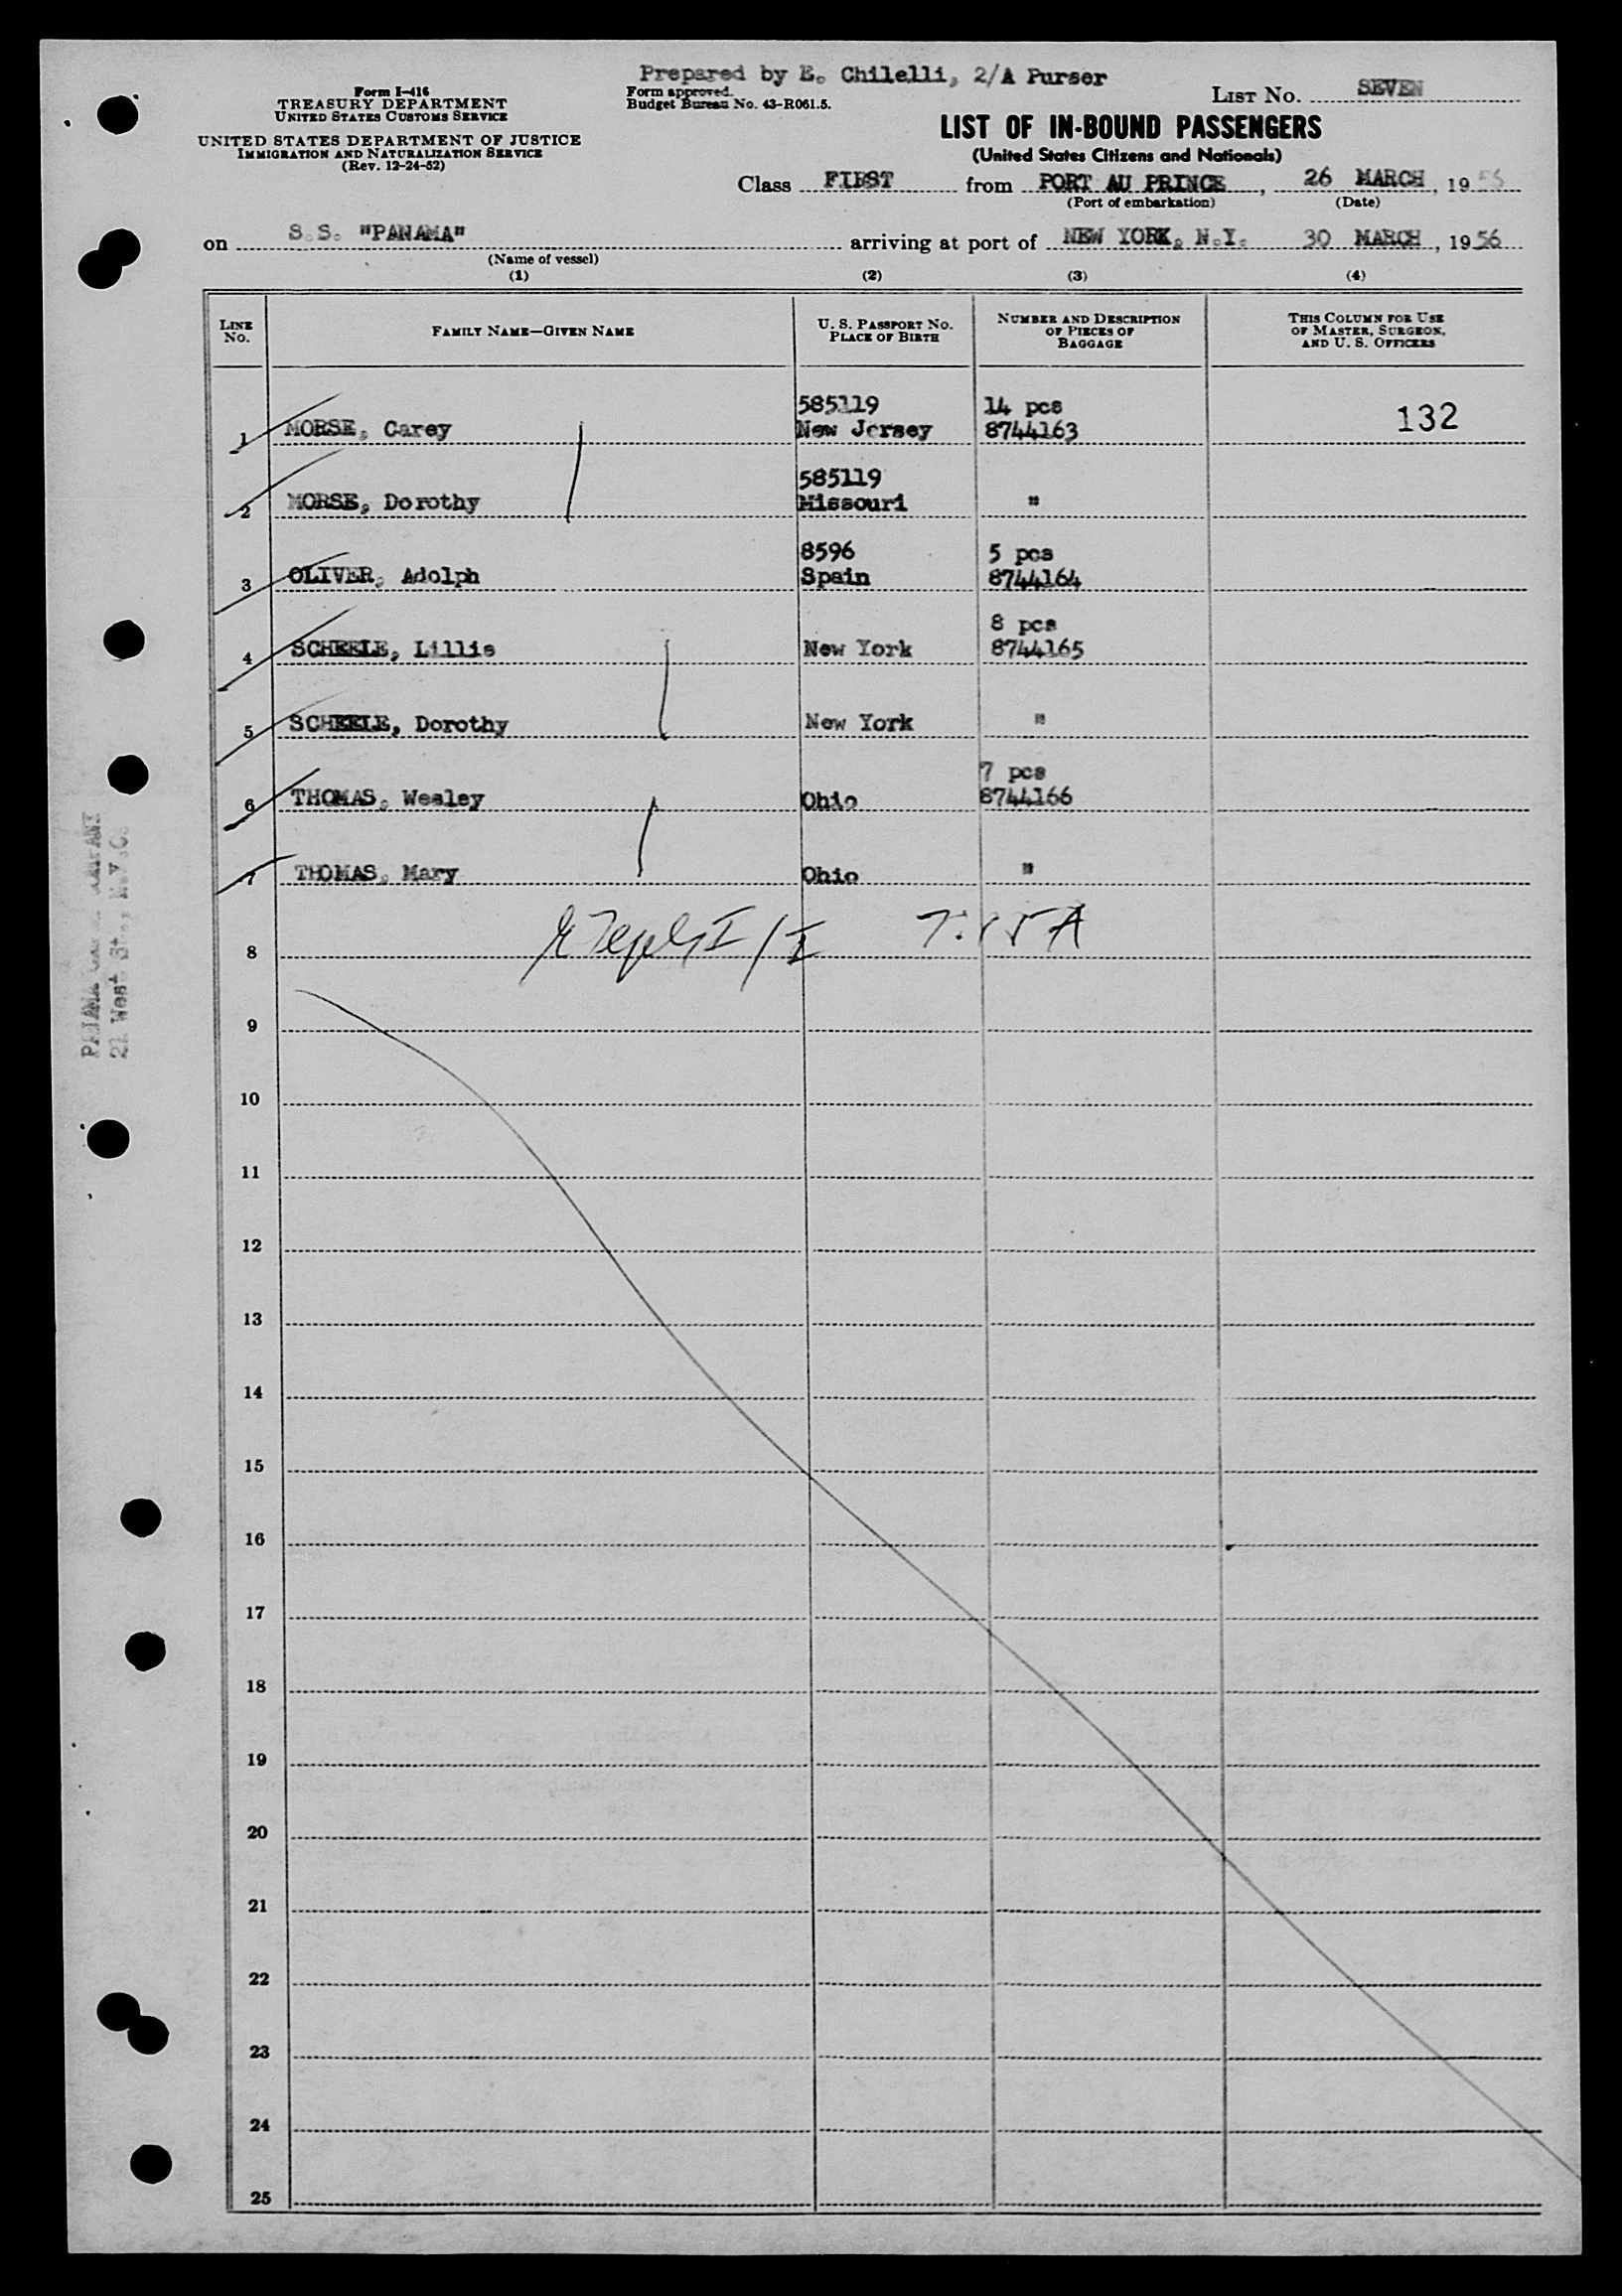 Prepared by E. Chilelli, 2/A Purser
Form I-416
TREASURY DEPARTMENT
UNITED STATES CUSTOMS SERVICE
UNITED STATES DEPARTMENT OF JUSTICE
IMMIGRATION AND NATURALIZATION SERVICE
(Rev. 12-24-52)
Form approved.
Budget Bureau No. 43-R061.5.
LIST NO. SEVEN
LIST OF IN-BOUND PASSENGERS
(United States Citizens and Nationals)
Class FIRST from PORT AU PRINCE, 26 MARCH, 1956
(Port of embarkation) (Date)
on S.S. "PANAMA" arriving at port of NEW YORK, N.Y. 30 MARCH, 1956
(Name of vessel)
(1) (2) (3) (4)
LINE NO. FAMILY NAME—GIVEN NAME U. S. PASSPORT NO. PLACE OF BIRTH NUMBER AND DESCRIPTION OF PIECES OF BAGGAGE THIS COLUMN FOR USE OF MASTER, SURGEON, AND U. S. OFFICERS
585119 14 pcs
1 MORSE, Carey New Jersey 8744163 132
585119
2 MORSE, Dorothy Missouri "
8596 5 pcs
3 OLIVER, Adolph Spain 8744164
8 pcs
4 SCHEELE, Lillis New York 8744165
5 SCHEELE, Dorothy New York "
7 pcs
6 THOMAS, Wesley Ohio 8744166
7 THOMAS, Mary Ohio "
8
9
10
11
12
13
14
15
16
17
18
19
20
21
22
23
24
25
PANAMA
21 West St., N.Y.C.